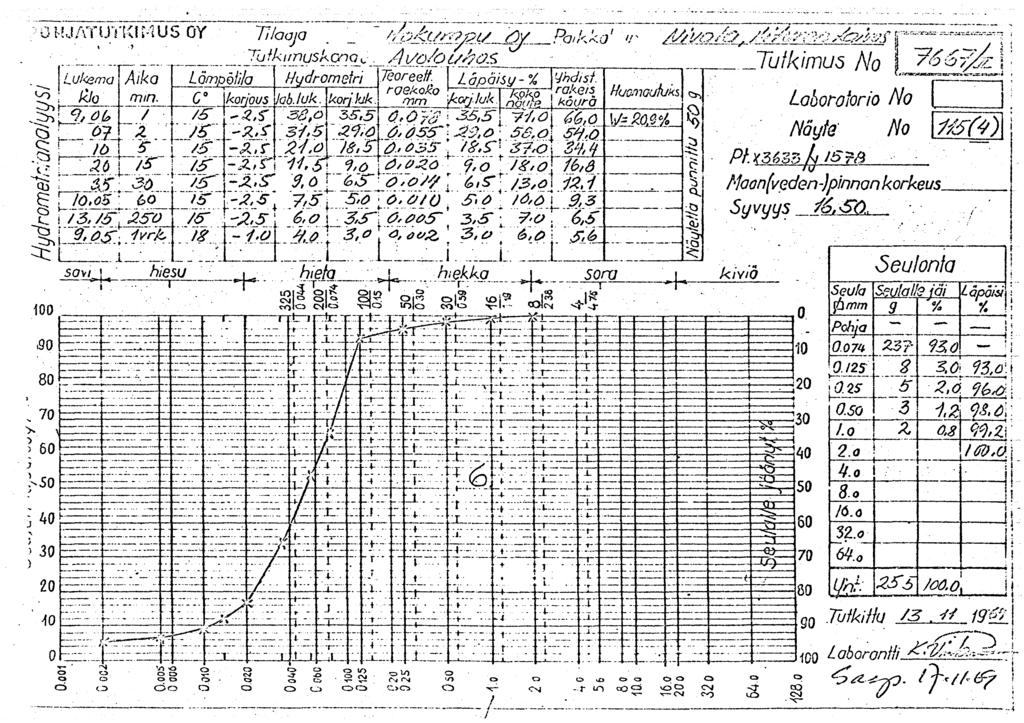 POHJATUTKIMUS OY Tilaaja Oy Paikka Nivala,
Tutkimuskohde Avolouhos Tutkimus No 7657/II
Lukema klo Aika min. Lämpötila Hydrometri Teoreett. raekoko mm Läpäisy-% Yhdist. rakeis. käyrä Huomautuks.
C° korjaus lab.luk. korj.luk. korj.luk. koko näyte
9,06 1 15 -2,5 38,0 35,5 0,078 35,5 71,0 66,0 W=20,9%
07 2 15 -2,5 31,5 29,0 0,055 29,0 58,0 54,0
10 5 15 -2,5 21,0 18,5 0,035 18,5 37,0 34,4
20 15 15 -2,5 11,5 9,0 0,020 9,0 18,0 16,8
35 30 15 -2,5 9,0 6,5 0,014 6,5 13,0 12,1
10,05 60 15 -2,5 7,5 5,0 0,010 5,0 10,0 9,3
13,15 250 15 -2,5 6,0 3,5 0,005 3,5 7,0 6,5
9,05 1vrk 18 -1,0 4,0 3,0 0,002 3,0 6,0 5,6
Hydrometrianalyysi
Näytettä punnittu 50 g
Laboratorio No
Näyte No 125(4)
Pt. x3633/y 1578
Maan(veden-)pinnan korkeus
Syvyys 16,50
savi hiesu hieta hiekka sora kiviä
325 200 100 50 30 16 8 4
0.044 0.074 0.15 0.30 0.59 1.19 2.38 4.76
100 90 80 70 60 50 40 30 20 10 0
0 10 20 30 40 50 60 70 80 90 100
Seulalle jäänyt %
6.
0.001 0.002 0.005 0.006 0.010 0.020 0.040 0.060 0.100 0.125 0.20 0.25 0.50 1.0 2.0 4.0 5.6 8.0 10.0 16.0 20.0 32.0 64.0 128.0
Seulonta
Seula ∅mm Seulalle jäi Läpäisi %
g %
Pohja — — —
0.074 237 93,0 —
0.125 8 3,0 93,0
0.25 5 2,0 96,0
0.50 3 1,2 98,0
1.0 2 0,8 99,2
2.0 100,0
4.0
8.0
16.0
32.0
64.0
Yht. 255 100,0
Tutkittu 13.11 1969
Laborantti
17.11.69